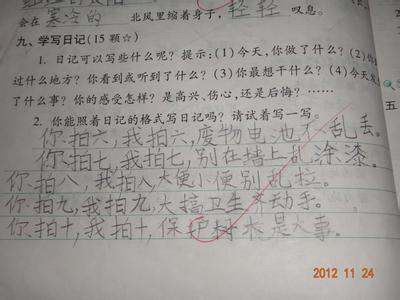 会在寒冷的 北风里缩着身子,轻轻叹息。
九、学写日记(15颗☆)
1. 日记可以写些什么呢? 提示:(1)今天,你做了什么?(2)
过什么地方? 你看到或听到了什么?(3)你最想干什么?(4)今天发
了什么事? 你的感受怎样? 是高兴、伤心,还是后悔? ……
2. 你能照着日记的格式写日记吗? 请试着写一写。
你拍六,我拍六,废物电池不乱丢。
你拍七,我拍七,别在墙上乱涂漆。
你拍八,我拍八,大便小便别乱拉。
你拍九,我拍九,大搞卫生齐动手。
你拍十,我拍十,保护树木是大事。
五
2012 11 24